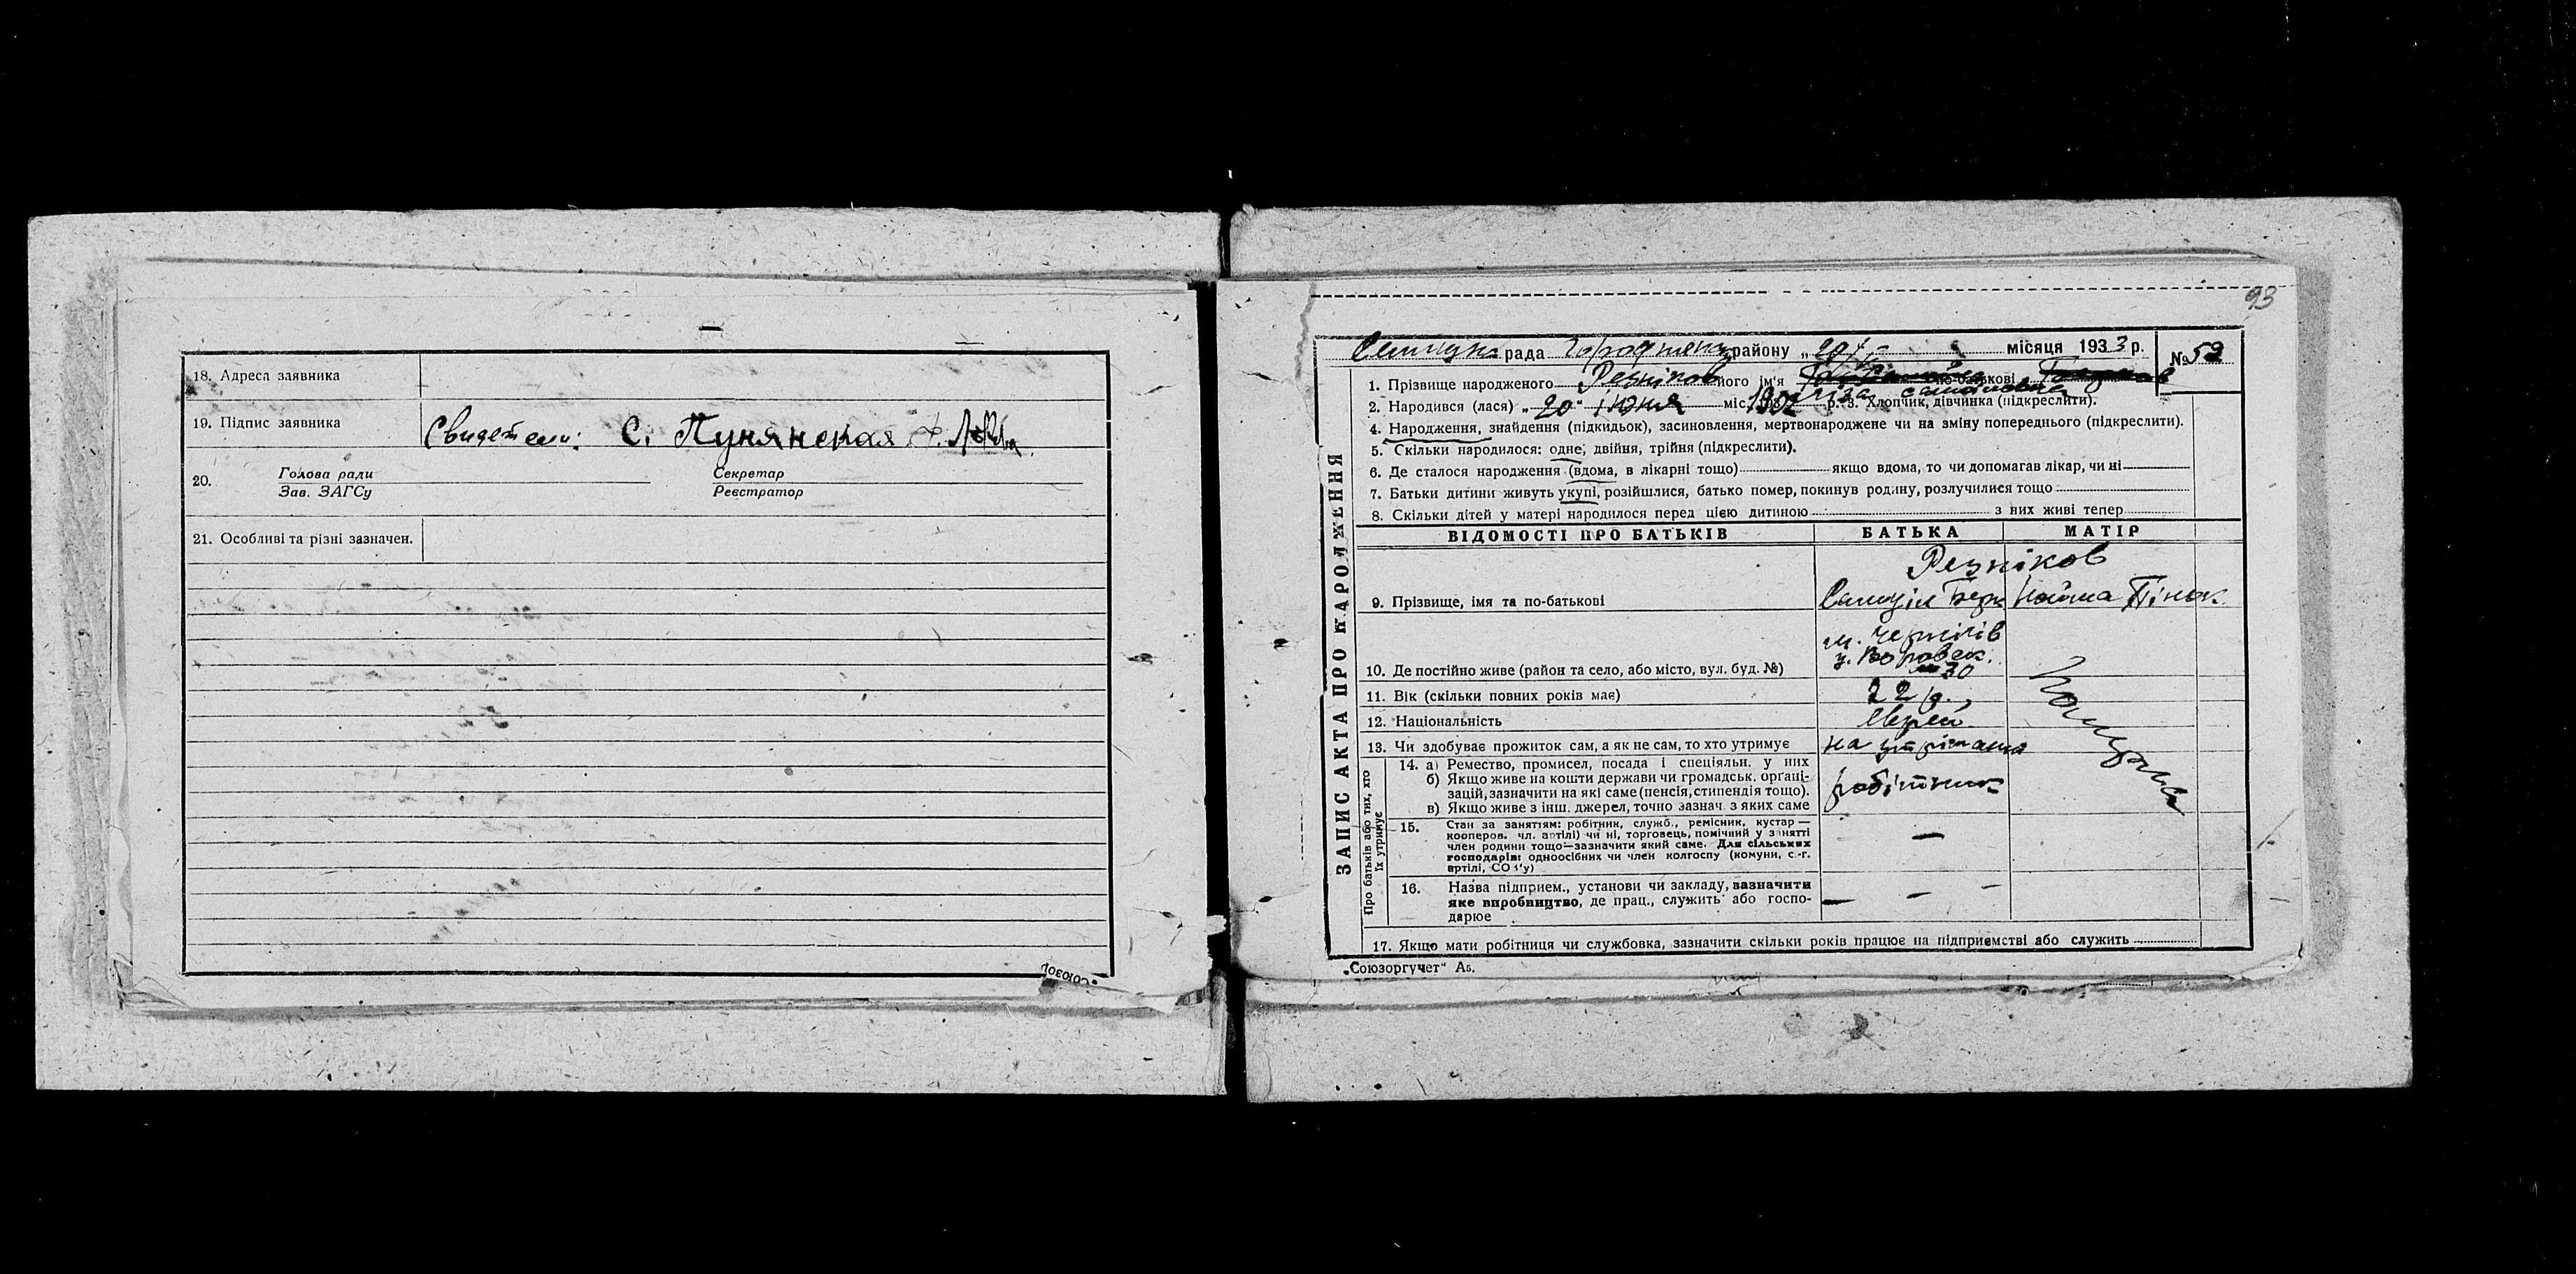 18. Адреса заявника
19. Підпис заявника Свидетели: С. Пунянская
20. Голова ради Секретар
Зав. ЗАГСу Реєстратор
21. Особливі та різні зазначен.
93
рада району „ місяця 1933 р. № 52
1. Прізвище народженого Резніков його ім'я по-батькові
2. Народився (лася) „20" июня міс. 190 р. 3. Хлопчик, дівчинка (підкреслити).
4. Народження, знайдення (підкидьок), засиновлення, мертвонароджене чи на зміну попереднього (підкреслити).
5. Скільки народилося: одне, двійня, трійня (підкреслити).
6. Де сталося народження (вдома, в лікарні тощо) якщо вдома, то чи допомагав лікар, чи ні
7. Батьки дитини живуть укупі, розійшлися, батько помер, покинув родину, розлучилися тощо
8. Скільки дітей у матері народилося перед цією дитиною з них живі тепер
ЗАПИС АКТА ПРО НАРОДЖЕННЯ
ВІДОМОСТІ ПРО БАТЬКІВ БАТЬКА МАТІР
Резніков
9. Прізвище, імя та по-батькові Самуіл Берк
м. Чернігів
10. Де постійно живе (район та село, або місто, вул. буд. №) 30
11. Вік (скільки повних років має) 22 р.
12. Національність Еврей
13. Чи здобуває прожиток сам, а як не сам, то хто утримує на
Про батьків або тих, хто їх утримує
14. а) Ремество, промисел, посада і спеціяльн. у них
б) Якщо живе на кошти держави чи громадськ. органі-
зацій, зазначити на які саме (пенсія, стипендія тощо). робітник
в) Якщо живе з інш. джерел, точно зазнач. з яких саме
15. Стан за заняттям: робітник, служб., ремісник, кустар —
кооперов. чл. артілі) чи ні, торговець, помічний у занятті
член родини тощо—зазначити який саме. Для сільських
господарів: одноосібних чи член колгоспу (комуни, с.-г.
артілі, СОЗ'у) —
16. Назва підприєм., установи чи закладу, зазначити
яке виробництво, де прац., служить або госпо-
дарює — — —
17. Якщо мати робітниця чи службовка, зазначити скільки років працює на підприємстві або служить
„Союзоргучет" Аб.